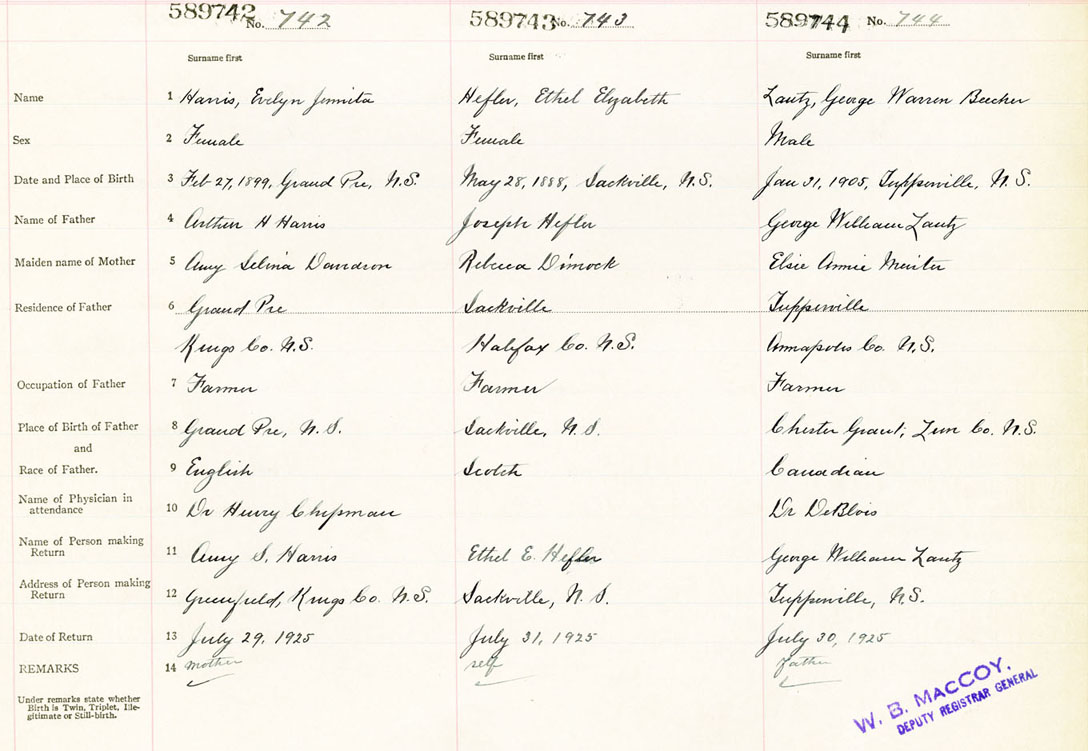 589742 No. 742 589743 No. 743 589744 No. 744
Surname first Surname first Surname first
Name 1 Harris, Evelyn Jennita Hefler, Ethel Elizabeth Lantz, George Warren Beecher
Sex 2 Female Female Male
Date and Place of Birth 3 Feb 27, 1899, Grand Pre, N.S. May 28, 1888, Sackville, N.S. Jan 31, 1905, Tupperville, N.S.
Name of Father 4 Arthur H Harris Joseph Hefler George William Lantz
Maiden name of Mother 5 Amy Selina Davidson Rebecca Dimock Elsie Annie Meister
Residence of Father 6 Grand Pre Sackville Tupperville
Kings Co. N.S. Halifax Co. N.S. Annapolis Co. N.S.
Occupation of Father 7 Farmer Farmer Farmer
Place of Birth of Father 8 Grand Pre, N.S. Sackville, N.S. Chester Grant, Lun Co. N.S.
and
Race of Father. 9 English Scotch Canadian
Name of Physician in
attendance 10 Dr Henry Chipman Dr DeBlois
Name of Person making
Return 11 Amy S. Harris Ethel E. Hefler George William Lantz
Address of Person making
Return 12 Greenfield, Kings Co. N.S. Sackville, N.S. Tupperville, N.S.
Date of Return 13 July 29, 1925 July 31, 1925 July 30, 1925
REMARKS 14 mother self father
Under remarks state whether
Birth is Twin, Triplet, Ille-
gitimate or Still-birth.
W. B. MACCOY,
DEPUTY REGISTRAR GENERAL